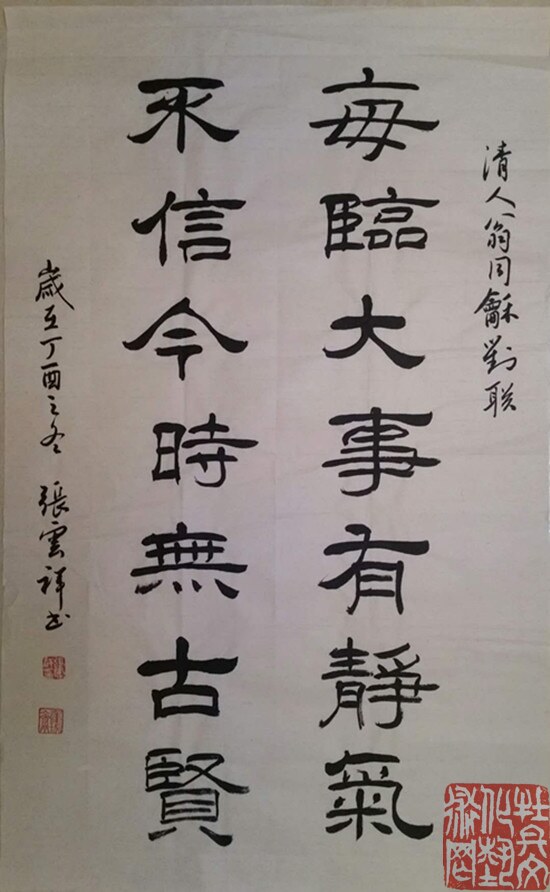 清人翁同龢對联
每臨大事有靜氣
不信今時無古賢
歲在丁酉之冬 張雲祥书